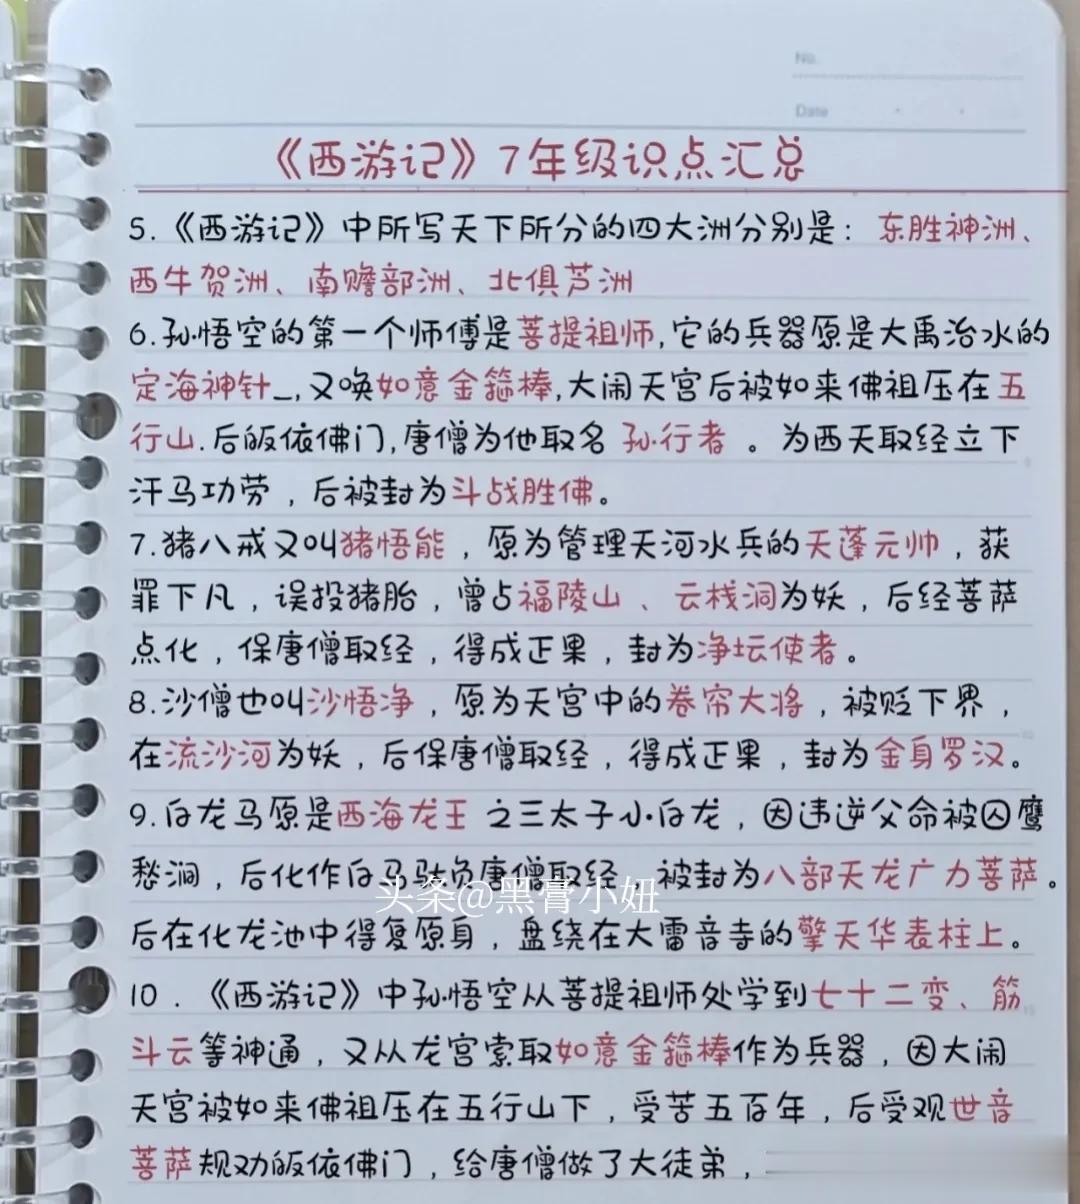 No.
Date
《西游记》7年级识点汇总
5.《西游记》中所写天下所分的四大洲分别是：东胜神洲、
西牛贺洲、南赡部洲、北俱芦洲
6.孙悟空的第一个师傅是菩提祖师,它的兵器原是大禹治水的
定海神针_,又唤如意金箍棒,大闹天宫后被如来佛祖压在五
行山.后皈依佛门,唐僧为他取名 孙行者 。为西天取经立下
汗马功劳，后被封为斗战胜佛。
7.猪八戒又叫猪悟能，原为管理天河水兵的天蓬元帅，获
罪下凡，误投猪胎，曾占福陵山、云栈洞为妖，后经菩萨
点化，保唐僧取经，得成正果，封为净坛使者。
8.沙僧也叫沙悟净，原为天宫中的卷帘大将，被贬下界，
在流沙河为妖，后保唐僧取经，得成正果，封为金身罗汉。
9.白龙马原是西海龙王 之三太子小白龙，因违逆父命被囚鹰
愁涧，后化作白马驮负唐僧取经，被封为八部天龙广力菩萨。
头条@黑膏小妞
后在化龙池中得复原身，盘绕在大雷音寺的擎天华表柱上。
10．《西游记》中孙悟空从菩提祖师处学到七十二变、筋
斗云等神通，又从龙宫索取如意金箍棒作为兵器，因大闹
天宫被如来佛祖压在五行山下，受苦五百年，后受观世音
菩萨规劝皈依佛门，给唐僧做了大徒弟，